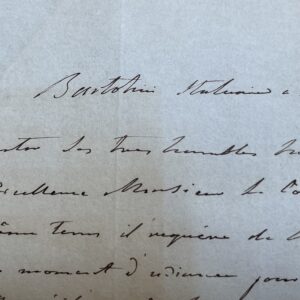 Bartolini Statuaire a
ses très humbles
Excellence Monsieur le Co
même tems il requière de
moment d'udiance pour